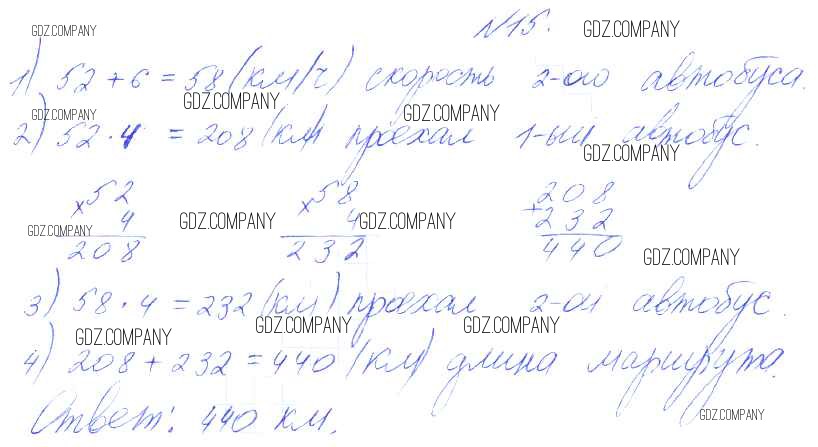 №15.
GDZ.COMPANY GDZ.COMPANY
1) 52 + 6 = 58 (км/ч) скорость 2-ого автобуса.
GDZ.COMPANY GDZ.COMPANY GDZ.COMPANY
2) 52 · 4 = 208 (км) проехал 1-ый автобус.
GDZ.COMPANY
× 52 × 58 + 208
4 4 232
GDZ.COMPANY GDZ.COMPANY GDZ.COMPANY
208 232 440
GDZ.COMPANY
3) 58 · 4 = 232 (км) проехал 2-ой автобус.
GDZ.COMPANY GDZ.COMPANY GDZ.COMPANY
4) 208 + 232 = 440 (км) длина маршрута.
Ответ: 440 км.
GDZ.COMPANY